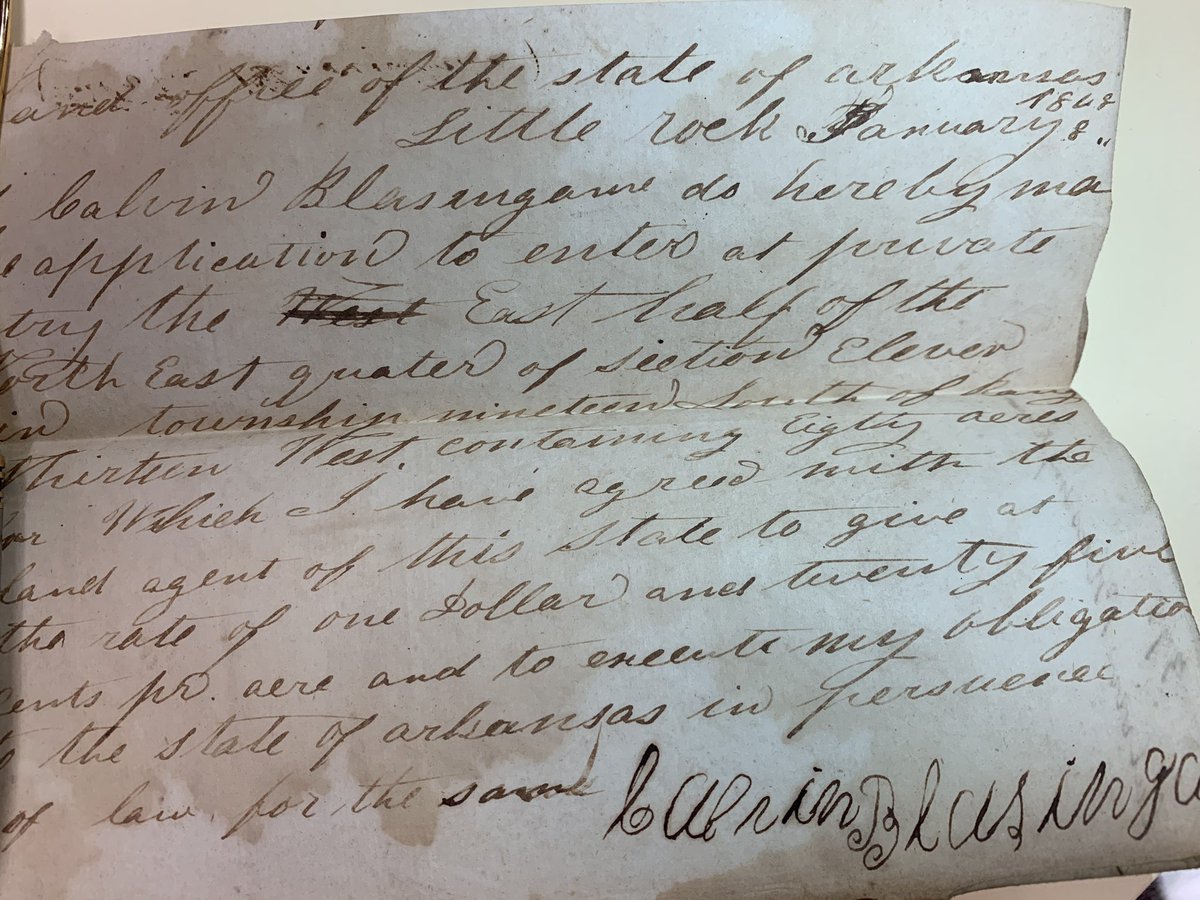 Land office of the state of arkansas
Little rock January 8 ..
Calvin Blasengame do hereby ma
ke application to enter at private
entry the West East half of the
North East quater of section Eleven
in township nineteen South of Rang
Thirteen West. containing Eigty acres
for Which I have agreed with the
land agent of this State to give at
the rate of one Dollar and twenty five
cents pr. acre and to execute my obligatio
to the state of arkansas in persuence
of law for the same
Calvin Blasinga